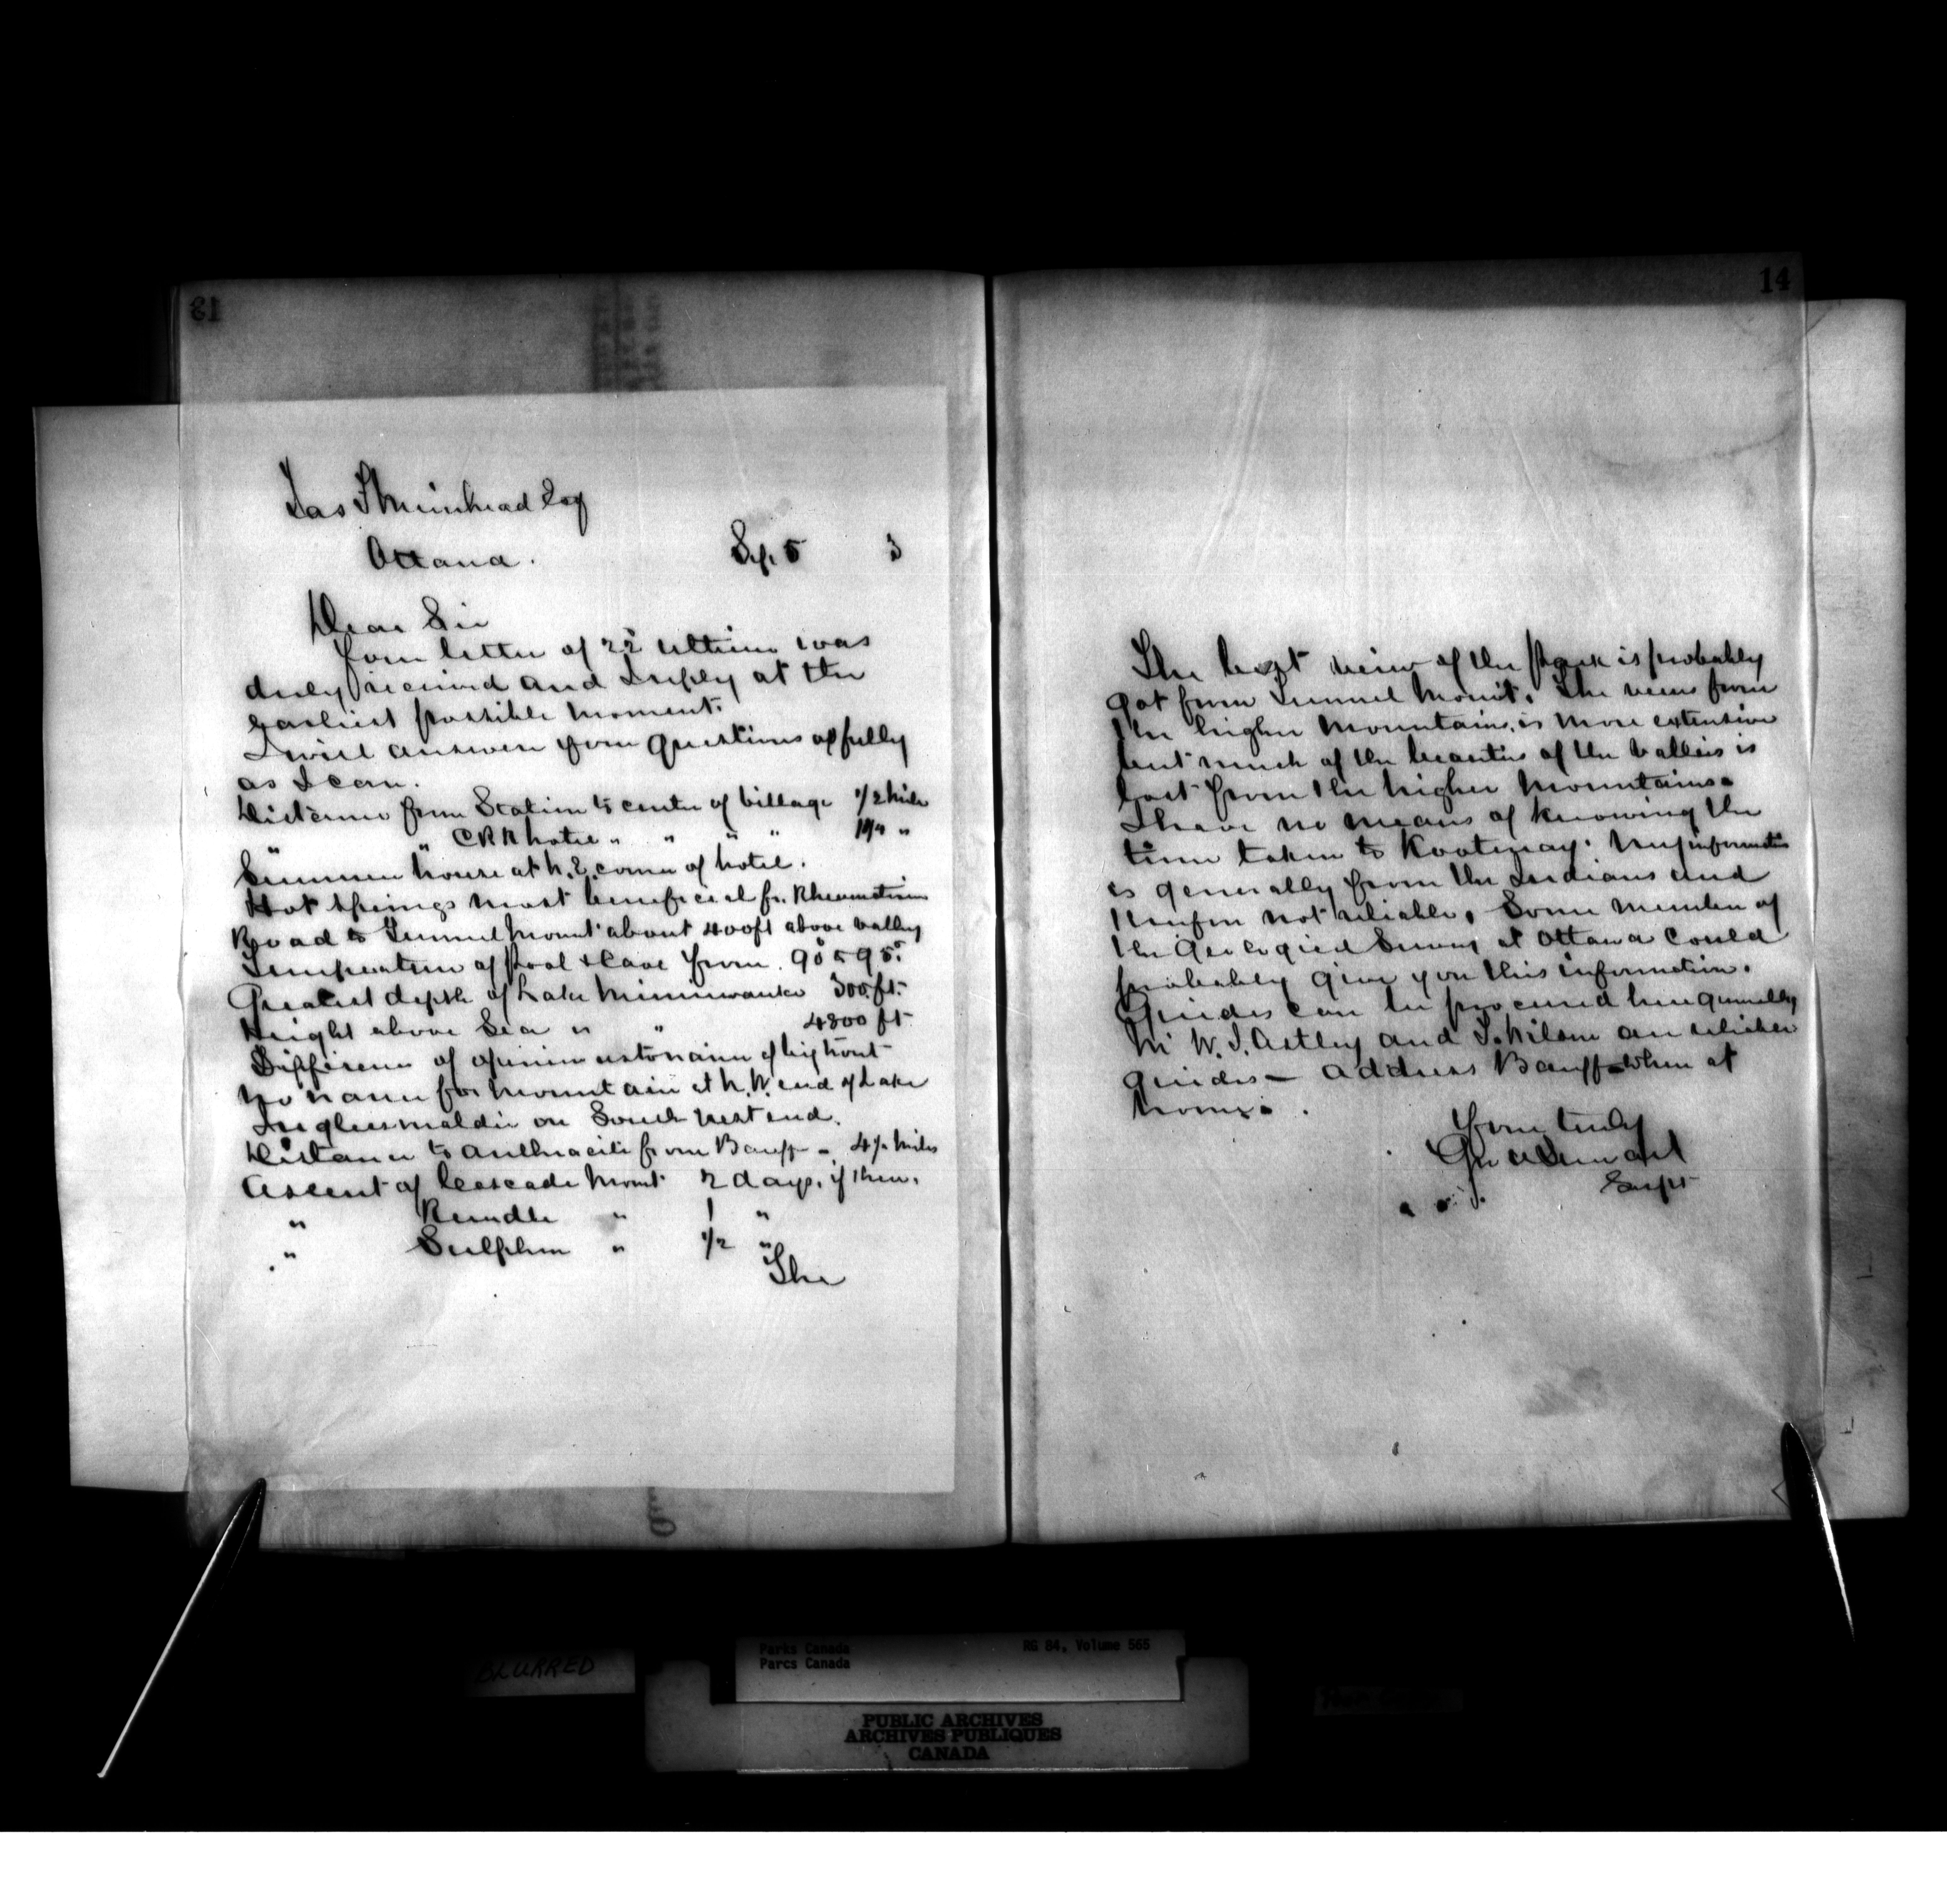 13
Jas S Muirhead Esq
Ottawa.
Sep. 5 3
Dear Sir
Your letter of 22d ultimo was
duly received and I reply at the
earliest possible moment.
I will answer your questions as fully
as I can.
Distance from Station to center of village 1/2 mile
" " CPR hotel " " " " 1 1/4 "
Summer house at N.E. corner of hotel.
Hot Springs most beneficial for Rheumatism
Road to Tunnel Mount about 400 ft above valley
Temperature of Pool & Cave from 90° to 95°
Greatest depth of Lake Minniwanka 300 ft.
Height above Sea " " 4800 ft
Difference of opinion as to name of big trout
No name for Mountain at N.W. end of Lake
Inglismaldie on South West end.
Distance to Anthracite from Banff - 4 1/2 miles
Ascent of Cascade Mount 2 days, if then.
" Rundle " 1 "
" Sulphur " 1/2 "
The
14
The best view of the Park is probably
got from Tunnel Mount. The view from
the higher Mountains, is more extensive
but much of the beauties of the valleys is
lost from the higher Mountains.
I have no means of knowing the
time taken to Kootenay. My information
is generally from the Indians and
therefore not reliable. Some member of
the Geological Survey at Ottawa could
probably give you this information.
Guides can be procured here generally
W. S. Astley and T. Wilson are reliable
guides — address Banff when at
home.
Yours truly
Geo A Stewart
Supt
BLURRED
Parks Canada RG 84, Volume 565
Parcs Canada
PUBLIC ARCHIVES
ARCHIVES PUBLIQUES
CANADA